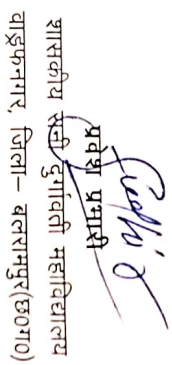 प्रवेश प्रभारी
शासकीय रानी दुर्गावती महाविद्यालय
वाड्रफनगर, जिला- बलरामपुर(छ0ग0)